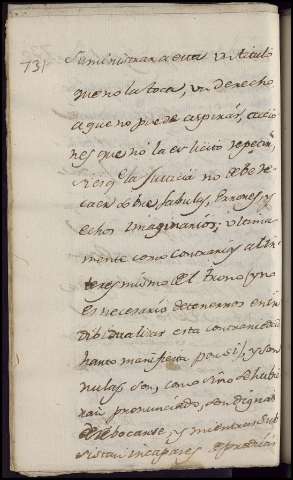 731
Suministrar a esta un titulo
que no la toca, un derecho
a que no puede aspirar, accio
nes que no la es licito repetir,
la Justicia no debe re
caer sobre fabulas, herrores, y
echos imaginarios; ultima
mente como contrarias al in
teres mismo del trono, y no
es necesario detenernos en in
dibidualizar esta contrariedad
harto manifiesta por si, y son
nulas son, como sino se hubie
ran pronunciado, son dignas
de rebocarse, y mientras sub
sistan incapaces de producir